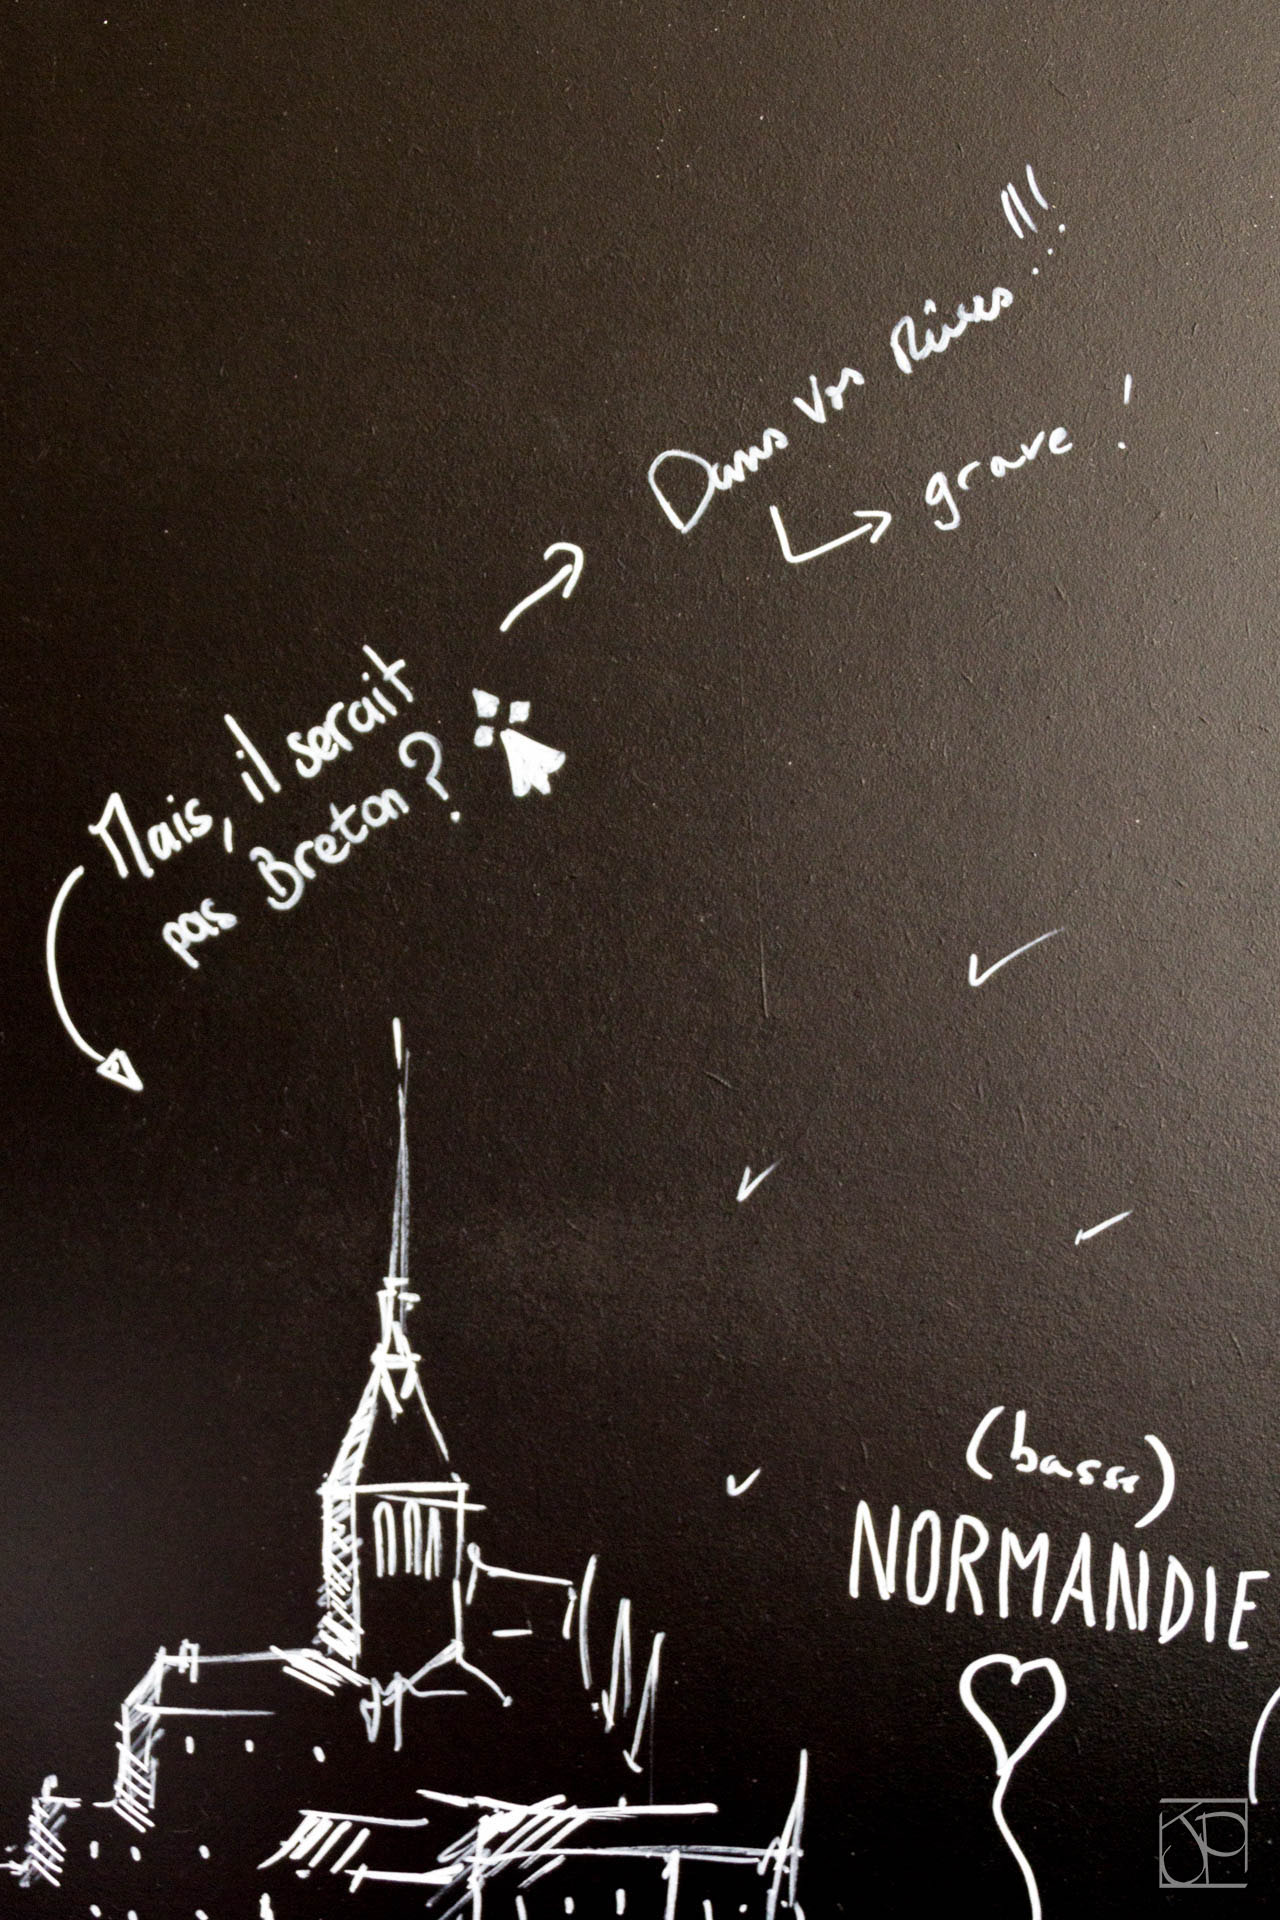 Dans vos Rêves!!!
grave !
Mais, il serait
pas Breton ?
(basse)
NORMANDIE
JP